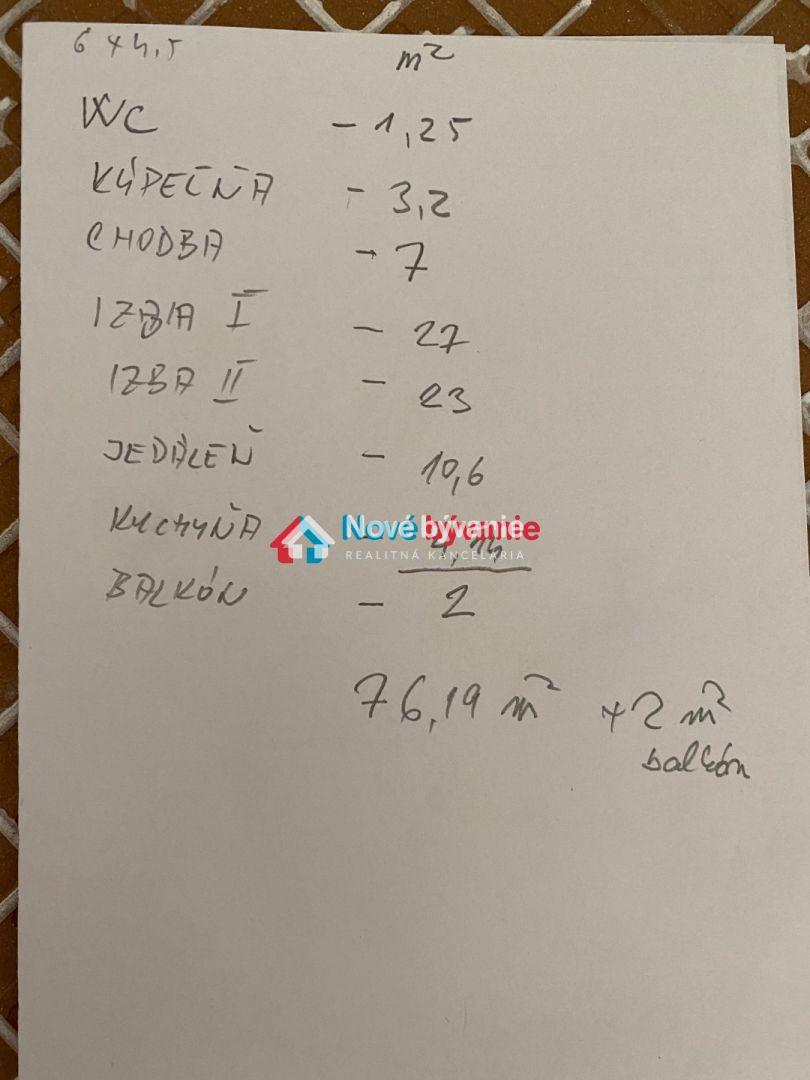 6 x 4,5
m²
WC - 1,25
KÚPEĽŇA - 3,2
CHODBA - 7
IZBA I - 27
IZBA II - 23
JEDÁLEŇ - 10,6
KUCHYŇA - 4,14
Nové bývanie
REALITNÁ KANCELÁRIA
BALKÓN - 2
76,19 m² + 2 m²
balkón